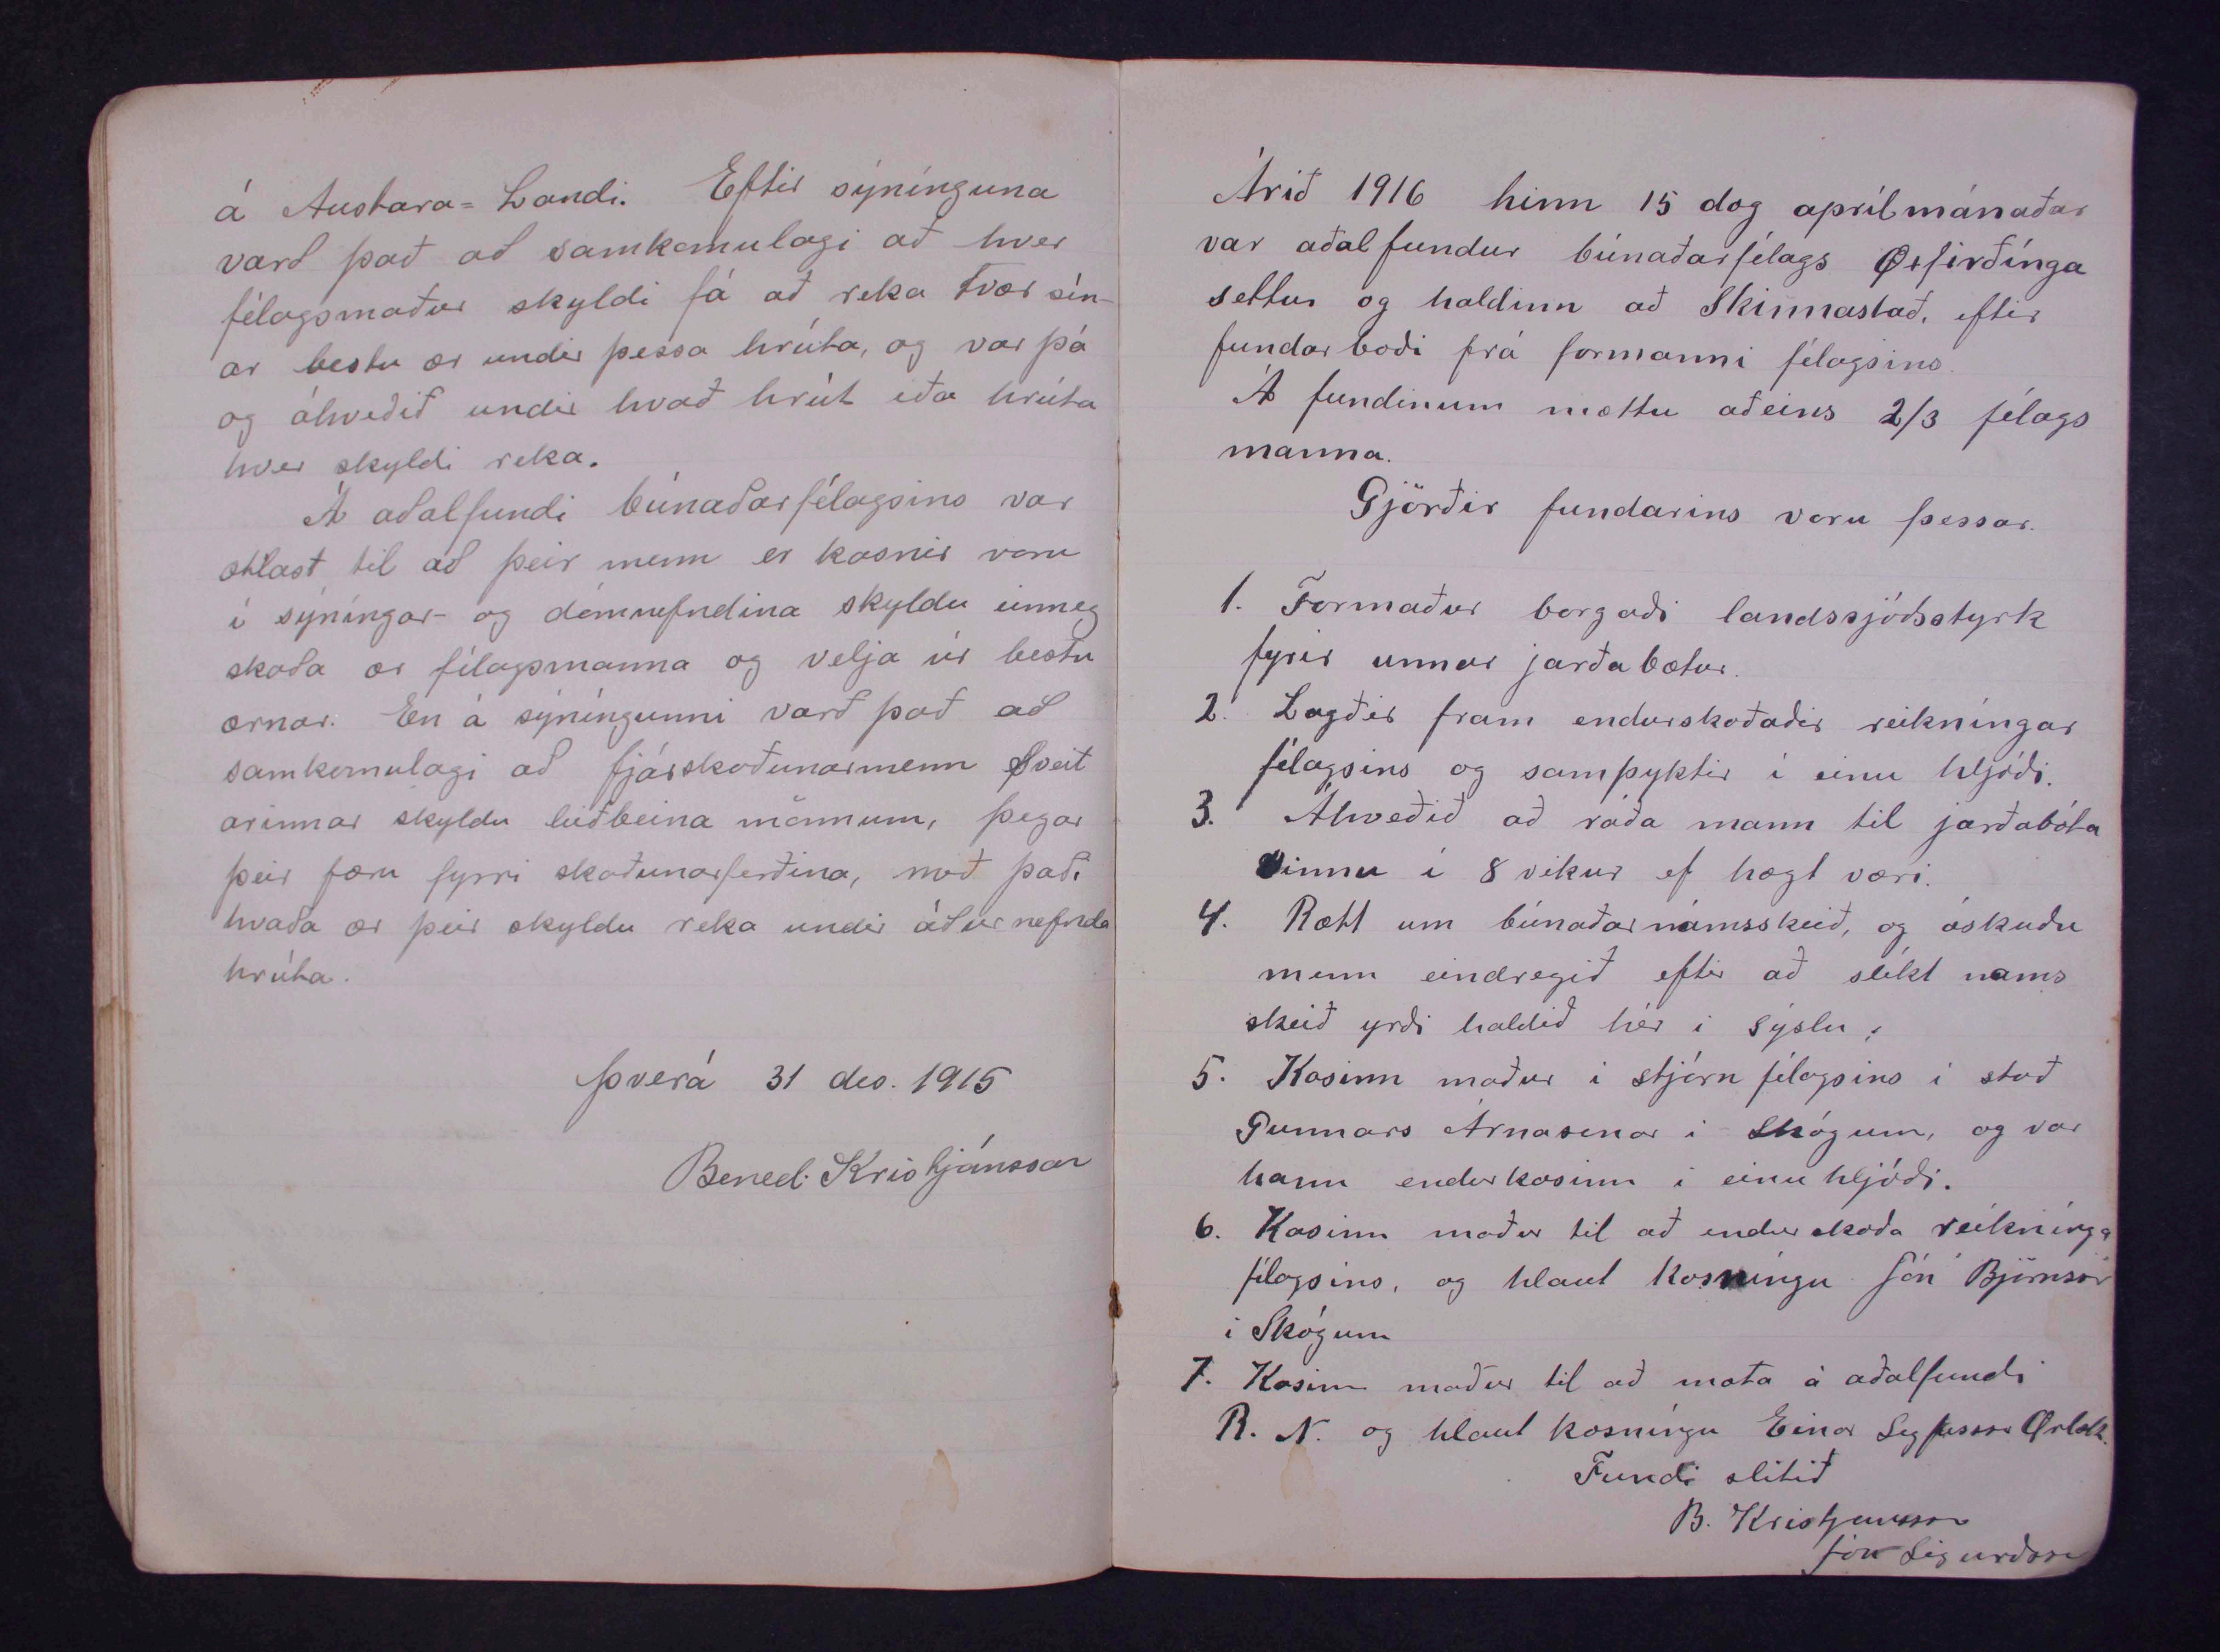 á Austara=Landi. Eftir sýnínguna
varð það að samkomulagi að hver
félagsmaður skyldi fá að reka tvær sín-
ar bestu ær undir þessa hrúta, og var þá
og ákveðið undir hvað hrút eða hrúta
hver skyldi reka.
Á aðalfundi búnaðarfélagsins var
ætlast til að þeir menn er kosnir voru
í sýníngar- og dómnefndina skyldu einneg
skoða ær félagsmanna og velja úr bestu
ærnar. En á sýníngunni varð það að
samkomulagi að fjárskoðunarmenn sveit
arinnar skyldu leiðbeina mönnum, þegar
þeir færu fyrri skoðunarferðina, með það:
hvaða ær þeir skyldu reka undir áður nefnda
hrúta.
Þverá 31 des. 1915
Bened. Kristjánsson
Árið 1916 hinn 15 dag aprílmánaðar
var aðalfundur búnaðarfélags Øxfirðínga
settur og haldinn að Skinnastað, eftir
fundarboði frá formanni félagsins.
Á fundinum mættu aðeins 2/3 félags
manna.
Gjörðir fundarins voru þessar.
1. Formaður borgaði landssjóðsstyrk
fyrir unnar jarðabætur.
2. Lagðir fram endurskoðaðir reikníngar
félagsins og samþyktir í einu hljóði.
3. Ákveðið að ráða mann til jarðabóta
vinnu í 8 vikur ef hægt væri.
4. Rætt um búnaðarnámsskeið, og óskuðu
menn eindregið eftir að slíkt náms
skeið yrði haldið hér í sýslu.
5. Kosinn maður í stjórn félagsins í stað
Gunnars Árnasonar í Skógum, og var
hann endurkosinn í einu hljóði.
6. Kosinn maður til að endurskoða reiknínga
félagsins, og hlaut kosníngu Jón Björnsson
í Skógum
7. Kosinn maður til að mæta á aðalfundi
R. N. og hlaut kosníngu Einar Sigfússon Ærlæk.
Fundi slitið
B. Kristjánsson
Jón Sigurðsson